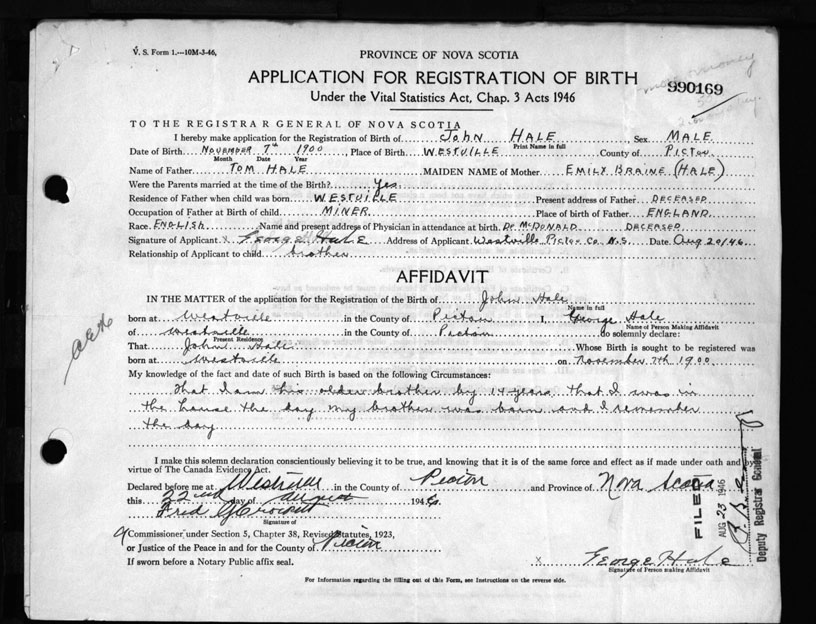 V. S. Form 1.—10M-3-46,
PROVINCE OF NOVA SCOTIA
APPLICATION FOR REGISTRATION OF BIRTH
990169
Under the Vital Statistics Act, Chap. 3 Acts 1946
TO THE REGISTRAR GENERAL OF NOVA SCOTIA
I hereby make application for the Registration of Birth of JOHN HALE, Sex MALE
Print Name in full
Date of Birth NOVEMBER 7th 1900, Place of Birth WESTVILLE County of PICTOU
Month Date Year
Name of Father TOM HALE MAIDEN NAME of Mother EMILY BRAINE (HALE)
Were the Parents married at the time of the Birth? Yes
Residence of Father when child was born WESTVILLE Present address of Father DECEASED
Occupation of Father at Birth of child MINER Place of birth of Father ENGLAND
Race ENGLISH Name and present address of Physician in attendance at birth Dr McDONALD DECEASED
Signature of Applicant x George Hale Address of Applicant Westville Pictou Co N.S. Date Aug 20/46
Relationship of Applicant to child brother
AFFIDAVIT
IN THE MATTER of the application for the Registration of the Birth of John Hale
Name in full
born at Westville in the County of Pictou I, George Hale
Name of Person Making Affidavit
of Westville in the County of Pictou do solemnly declare:
Present Residence
That John Hale Whose Birth is sought to be registered was
born at Westville on November 7th 1900
My knowledge of the fact and date of such Birth is based on the following Circumstances:
That I am his older brother by 14 years that I was in
the house the day my brother was born and I remember
the day
I make this solemn declaration conscientiously believing it to be true, and knowing that it is of the same force and effect as if made under oath and by
virtue of The Canada Evidence Act.
Declared before me at Westville in the County of Pictou and Province of Nova Scotia
this 22nd day of August 1946
Fred
Signature of
Commissioner under Section 5, Chapter 38, Revised Statutes, 1923,
or Justice of the Peace in and for the County of Pictou
If sworn before a Notary Public affix seal.
x George Hale
Signature of Person making Affidavit
For Information regarding the filling out of this Form, see Instructions on the reverse side.
FILED
AUG 23 1946
Deputy Registrar General